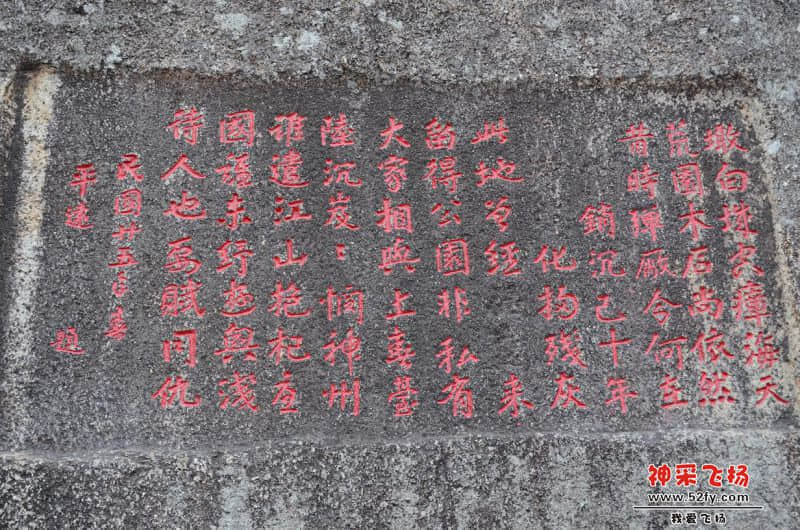 墩向球瘴海天
荒園木石尚依然
昔時琿廠今何在
銷沉已十年
化物残灰
此地曾經 来
留得公園非私有
大家相與上春臺
陸沉岌：憫神州
誰遣江山抱杞
國難未紓遊興淺
待人也為賦同仇
民國廿五年春
平遠 題
神采飞扬
www.52fy.com
我爱飞扬